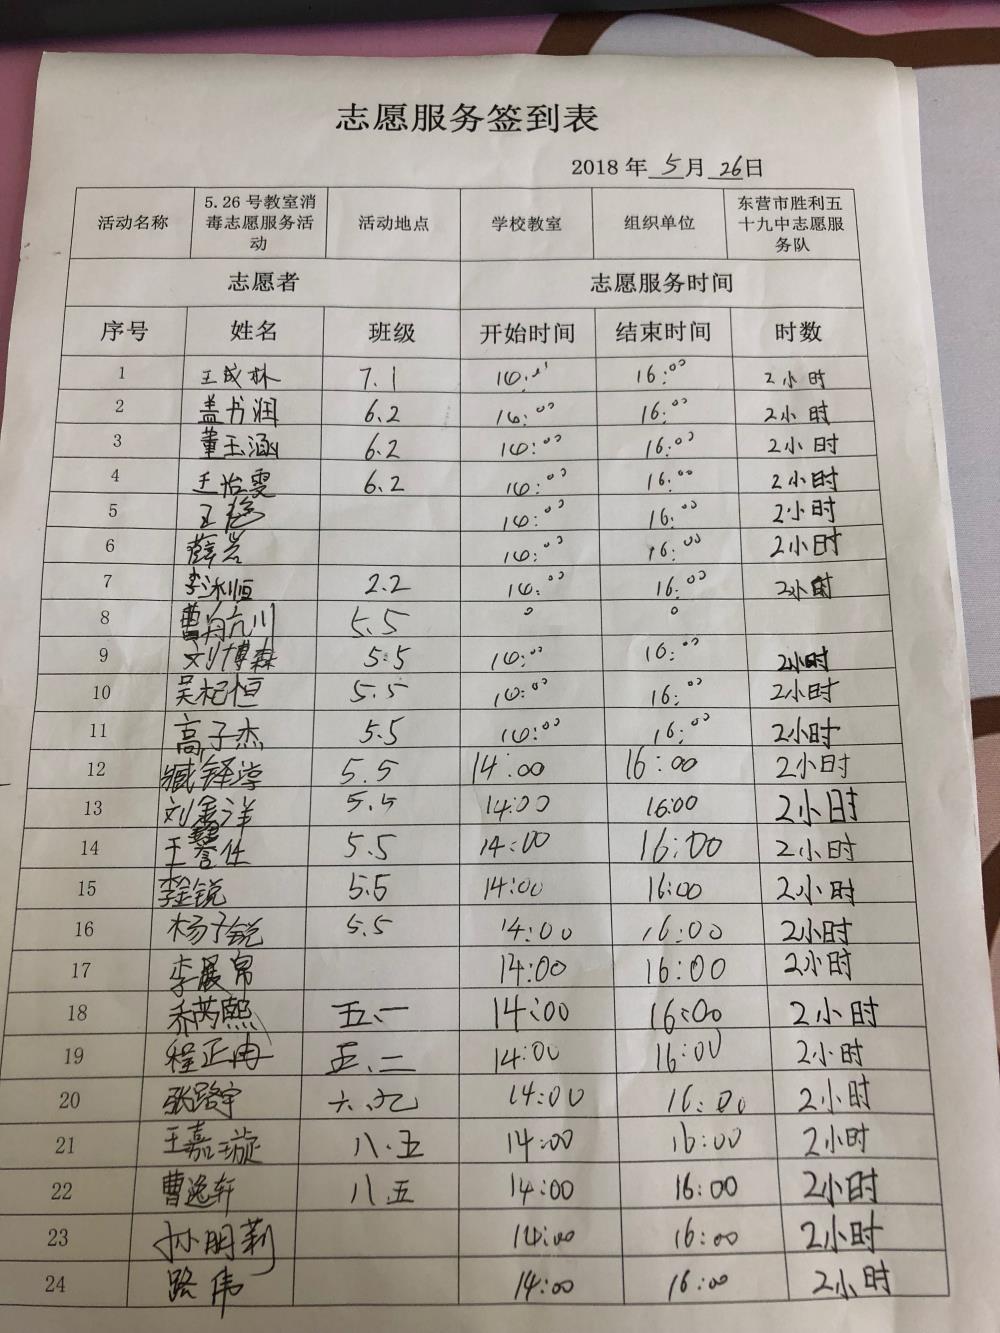 志愿服务签到表
2018 年 5 月 26 日
活动名称 5.26 号教室消毒志愿服务活动 活动地点 学校教室 组织单位 东营市胜利五十九中志愿服务队
志愿者 志愿服务时间
序号 姓名 班级 开始时间 结束时间 时数
1 王成林 7.1 14: 16:00 2小时
2 盖书润 6.2 14:00 16:00 2小时
3 董玉涵 6.2 14:00 16:00 2小时
4 王怡雯 6.2 14:00 16:00 2小时
5 王艳 14:00 16:00 2小时
6 薛芳 14:00 16:00 2小时
7 李沐恒 2.2 14:00 16:00 2小时
8 曹舟亢川 5.5
9 刘博森 5.5 14:00 16:00 2小时
10 吴杞恒 5.5 14:00 16:00 2小时
11 高子杰 5.5 14:00 16:00 2小时
12 臧铎淳 5.5 14:00 16:00 2小时
13 刘鑫洋 5.5 14:00 16:00 2小时
14 王誉仕 5.5 14:00 16:00 2小时
15 李金锐 5.5 14:00 16:00 2小时
16 杨子锐 5.5 14:00 16:00 2小时
17 李展帛 14:00 16:00 2小时
18 乔芮熙 五.一 14:00 16:00 2小时
19 程正冉 五.二 14:00 16:00 2小时
20 张路宇 六.九 14:00 16:00 2小时
21 王嘉璇 八.五 14:00 16:00 2小时
22 曹逸轩 八.五 14:00 16:00 2小时
23 孙朋莉 14:00 16:00 2小时
24 路伟 14:00 16:00 2小时